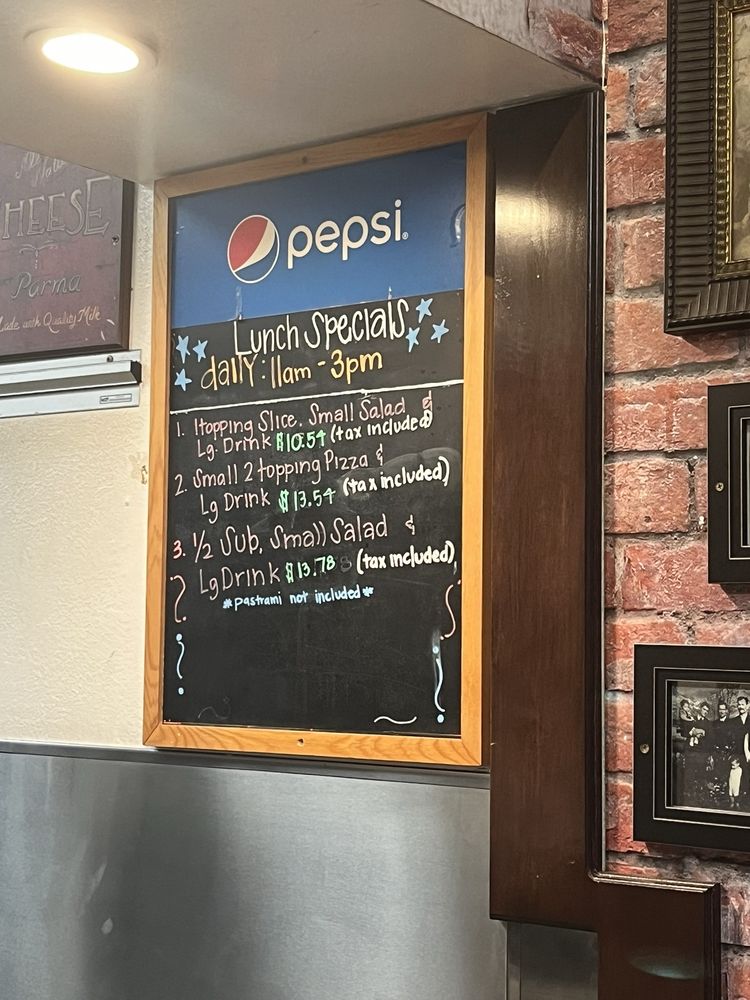 HEESE
Parma
Made with Quality Milk
pepsi
Lunch Specials
daily: 11am - 3pm
1. 1topping Slice, Small Salad &
Lg. Drink $10.54 (tax included)
2. Small 2 topping Pizza &
Lg Drink $13.54 (tax included)
3. 1/2 Sub, Small Salad &
Lg Drink $13.78 (tax included)
*pastrami not included*